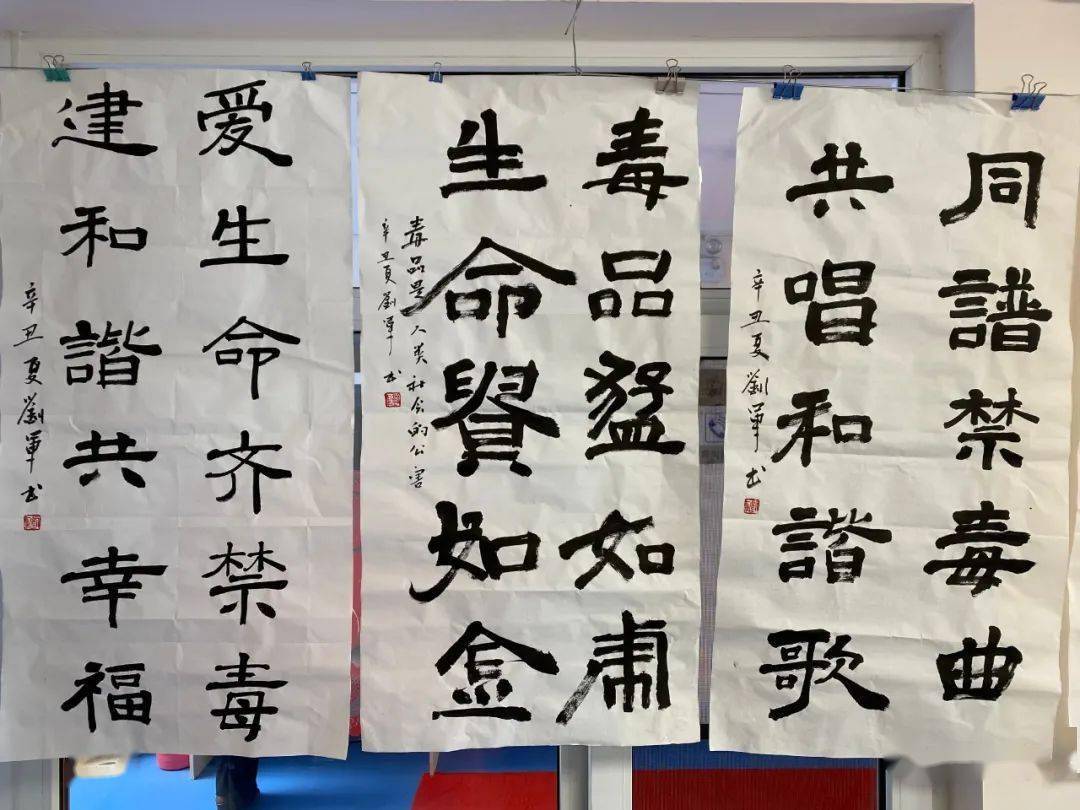 同譜禁毒曲
共唱和諧歌
辛丑夏劉軍书
毒品猛如虎
生命貴如金
毒品是人类社会的公害
辛丑夏劉軍书
爱生命齐禁毒
建和諧共幸福
辛丑夏劉軍书